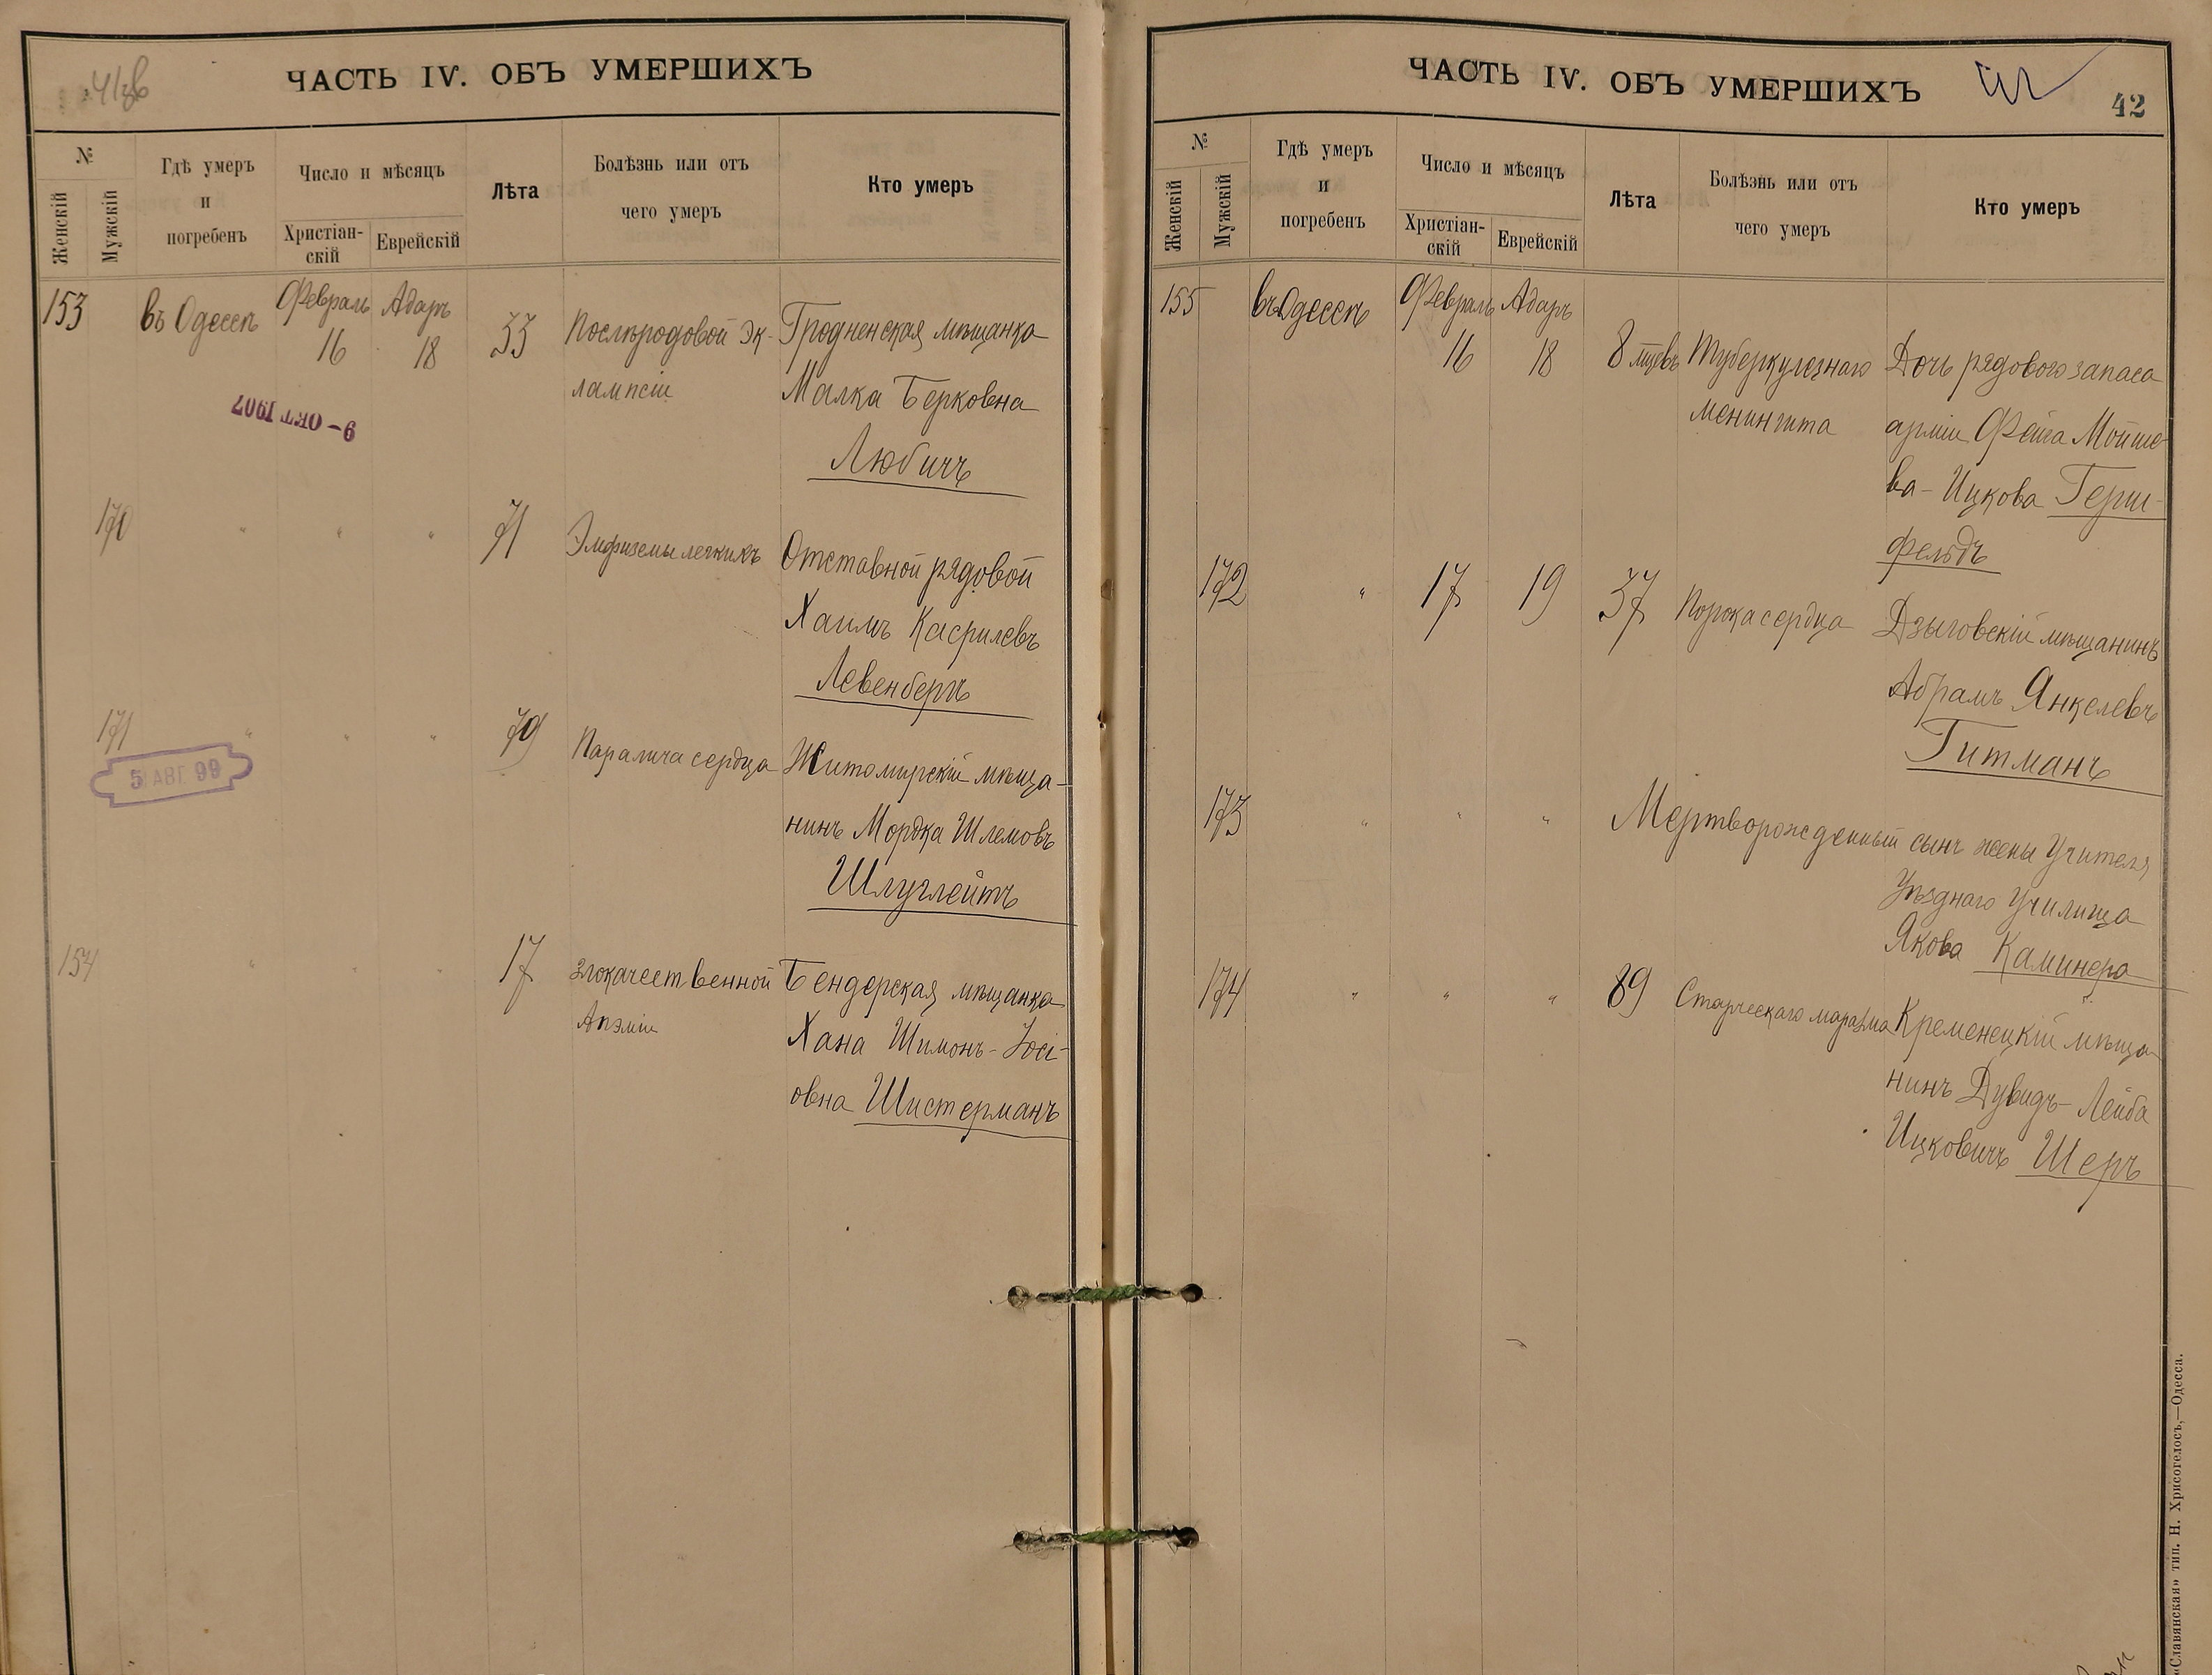 ЧАСТЬ IV. ОБЪ УМЕРШИХЪ
№
Женскій
Мужскій
Гдѣ умеръ
и
погребенъ
Число и мѣсяцъ
Христіан-
скій
Еврейскій
Лѣта
Болѣзнь или отъ
чего умеръ
Кто умеръ
153 въ Одессѣ Февраль Адаръ
16 18 33 Послѣродовой эк- Гродненская мѣщанка
лампсіи Малка Берковна
9 - ОКТ 1907
Любичъ
170 " " " 71 Эмфиземы легкихъ Отставной рядовой
Хаимъ Касрилевъ
Левенбергъ
171 " " " 79 Паралича сердца Житомирскій мѣща-
5 АВГ. 99
нинъ Мордка Шлемовъ
Шлуглейтъ
154 " " " 17 злокачественной Бендерская мѣщанка
Анэміи Хана Шимонъ-Іосі-
овна Шистерманъ
ЧАСТЬ IV. ОБЪ УМЕРШИХЪ
42
№
Женскій
Мужскій
Гдѣ умеръ
и
погребенъ
Число и мѣсяцъ
Христіан-
скій
Еврейскій
Лѣта
Болѣзнь или отъ
чего умеръ
Кто умеръ
155 въ Одессѣ Февраль Адаръ
16 18 8 мцевъ Туберкулезнаго Дочь рядового запаса
менингита арміи Фейга Мойше-
ва-Ицкова Герш-
фельдъ
172 " 17 19 37 Порока сердца Дзыговскій мѣщанинъ
Абрамъ Янкелевъ
Гитманъ
173 " " " Мертворожденный сынъ жены Учителя
Уѣзднаго Училища
Якова Каминера
174 " " " 89 Старческаго маразма Кременецкій мѣща-
нинъ Дувидъ-Лейба
Ицковичъ Шеръ
«Славянская» тип. Н. Хрисогелосъ,—Одесса.